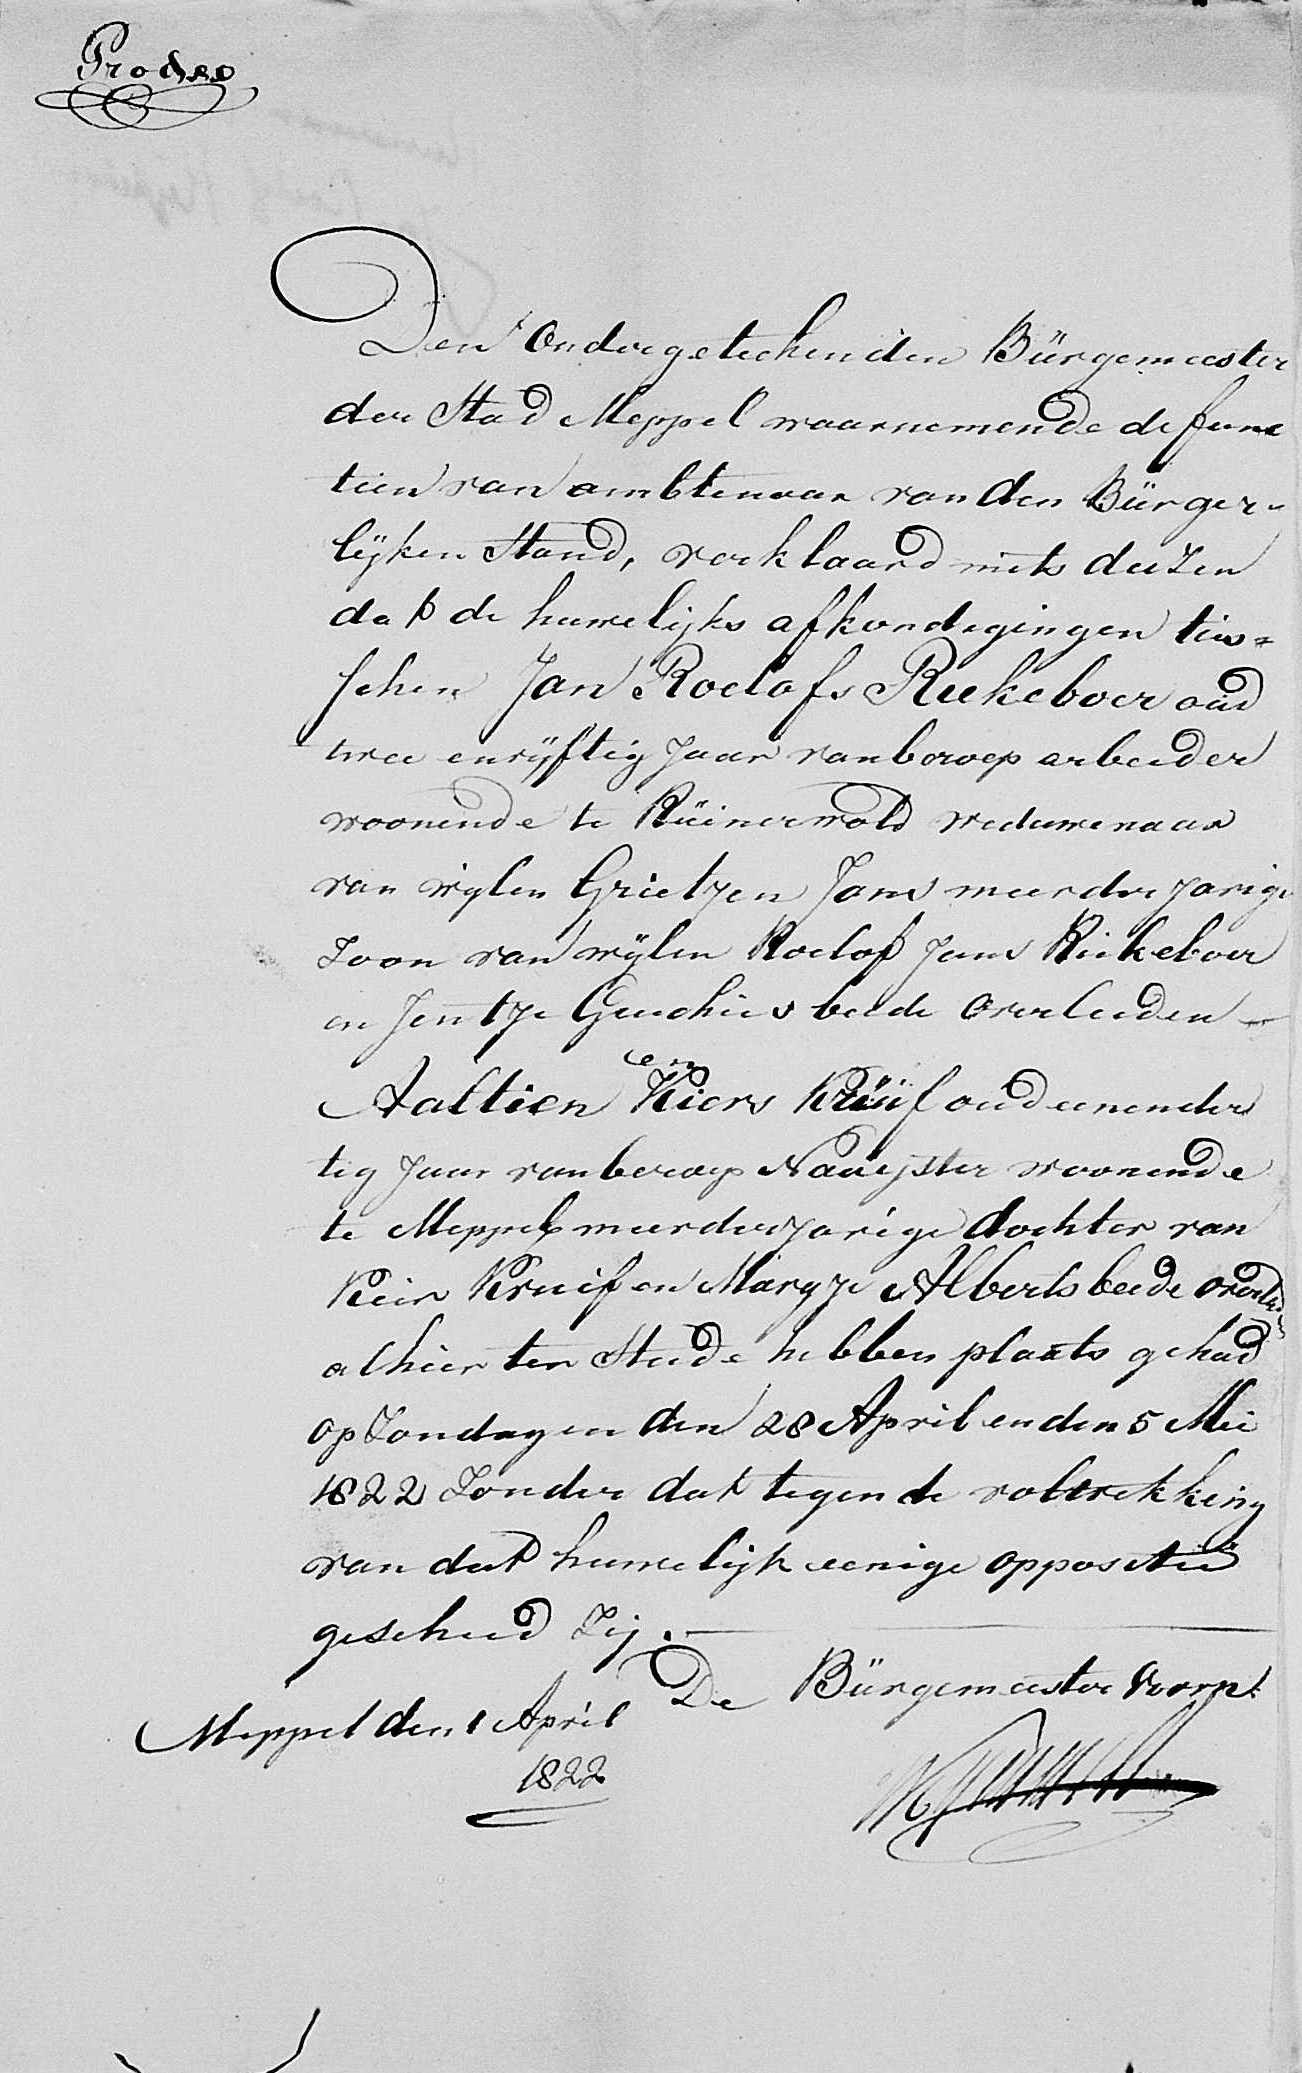 Prodeo
Den Ondergeteekenden Bürgemeester
der Stad Meppel waarnemende de func
tien van ambtenaar van den Bürger-
lijken Stand, verklaard mits deezen
dat de huwelijks afkondegingen tus=
schen Jan Roelofs Riekeboer oud
twee en vijftig Jaar van beroep arbeider
woonende te Rüinerwold weduwenaar
van wijlen Grietjen Jans meerderjarige
Zoon van wijlen Roelof Jans Riekeboer
en Jentje Geuchies beide Overleeden
en
Aaltien Kiers Krüif oud eenender
tig Jaar van beroep Naaijster woonende
te Meppel meerderjarige dochter van
Kier Kruif en Margje Alberts beide overled
alhier ter Steede hebben plaats gehad
op Zondagen den 28 April en den 5 Mei
1822 Zonder dat tegen de voltrekking
van dat huwelijk eenige oppositie
geschied Zij.
De Bürgemeester voorn.
Meppel den 1 April
1822